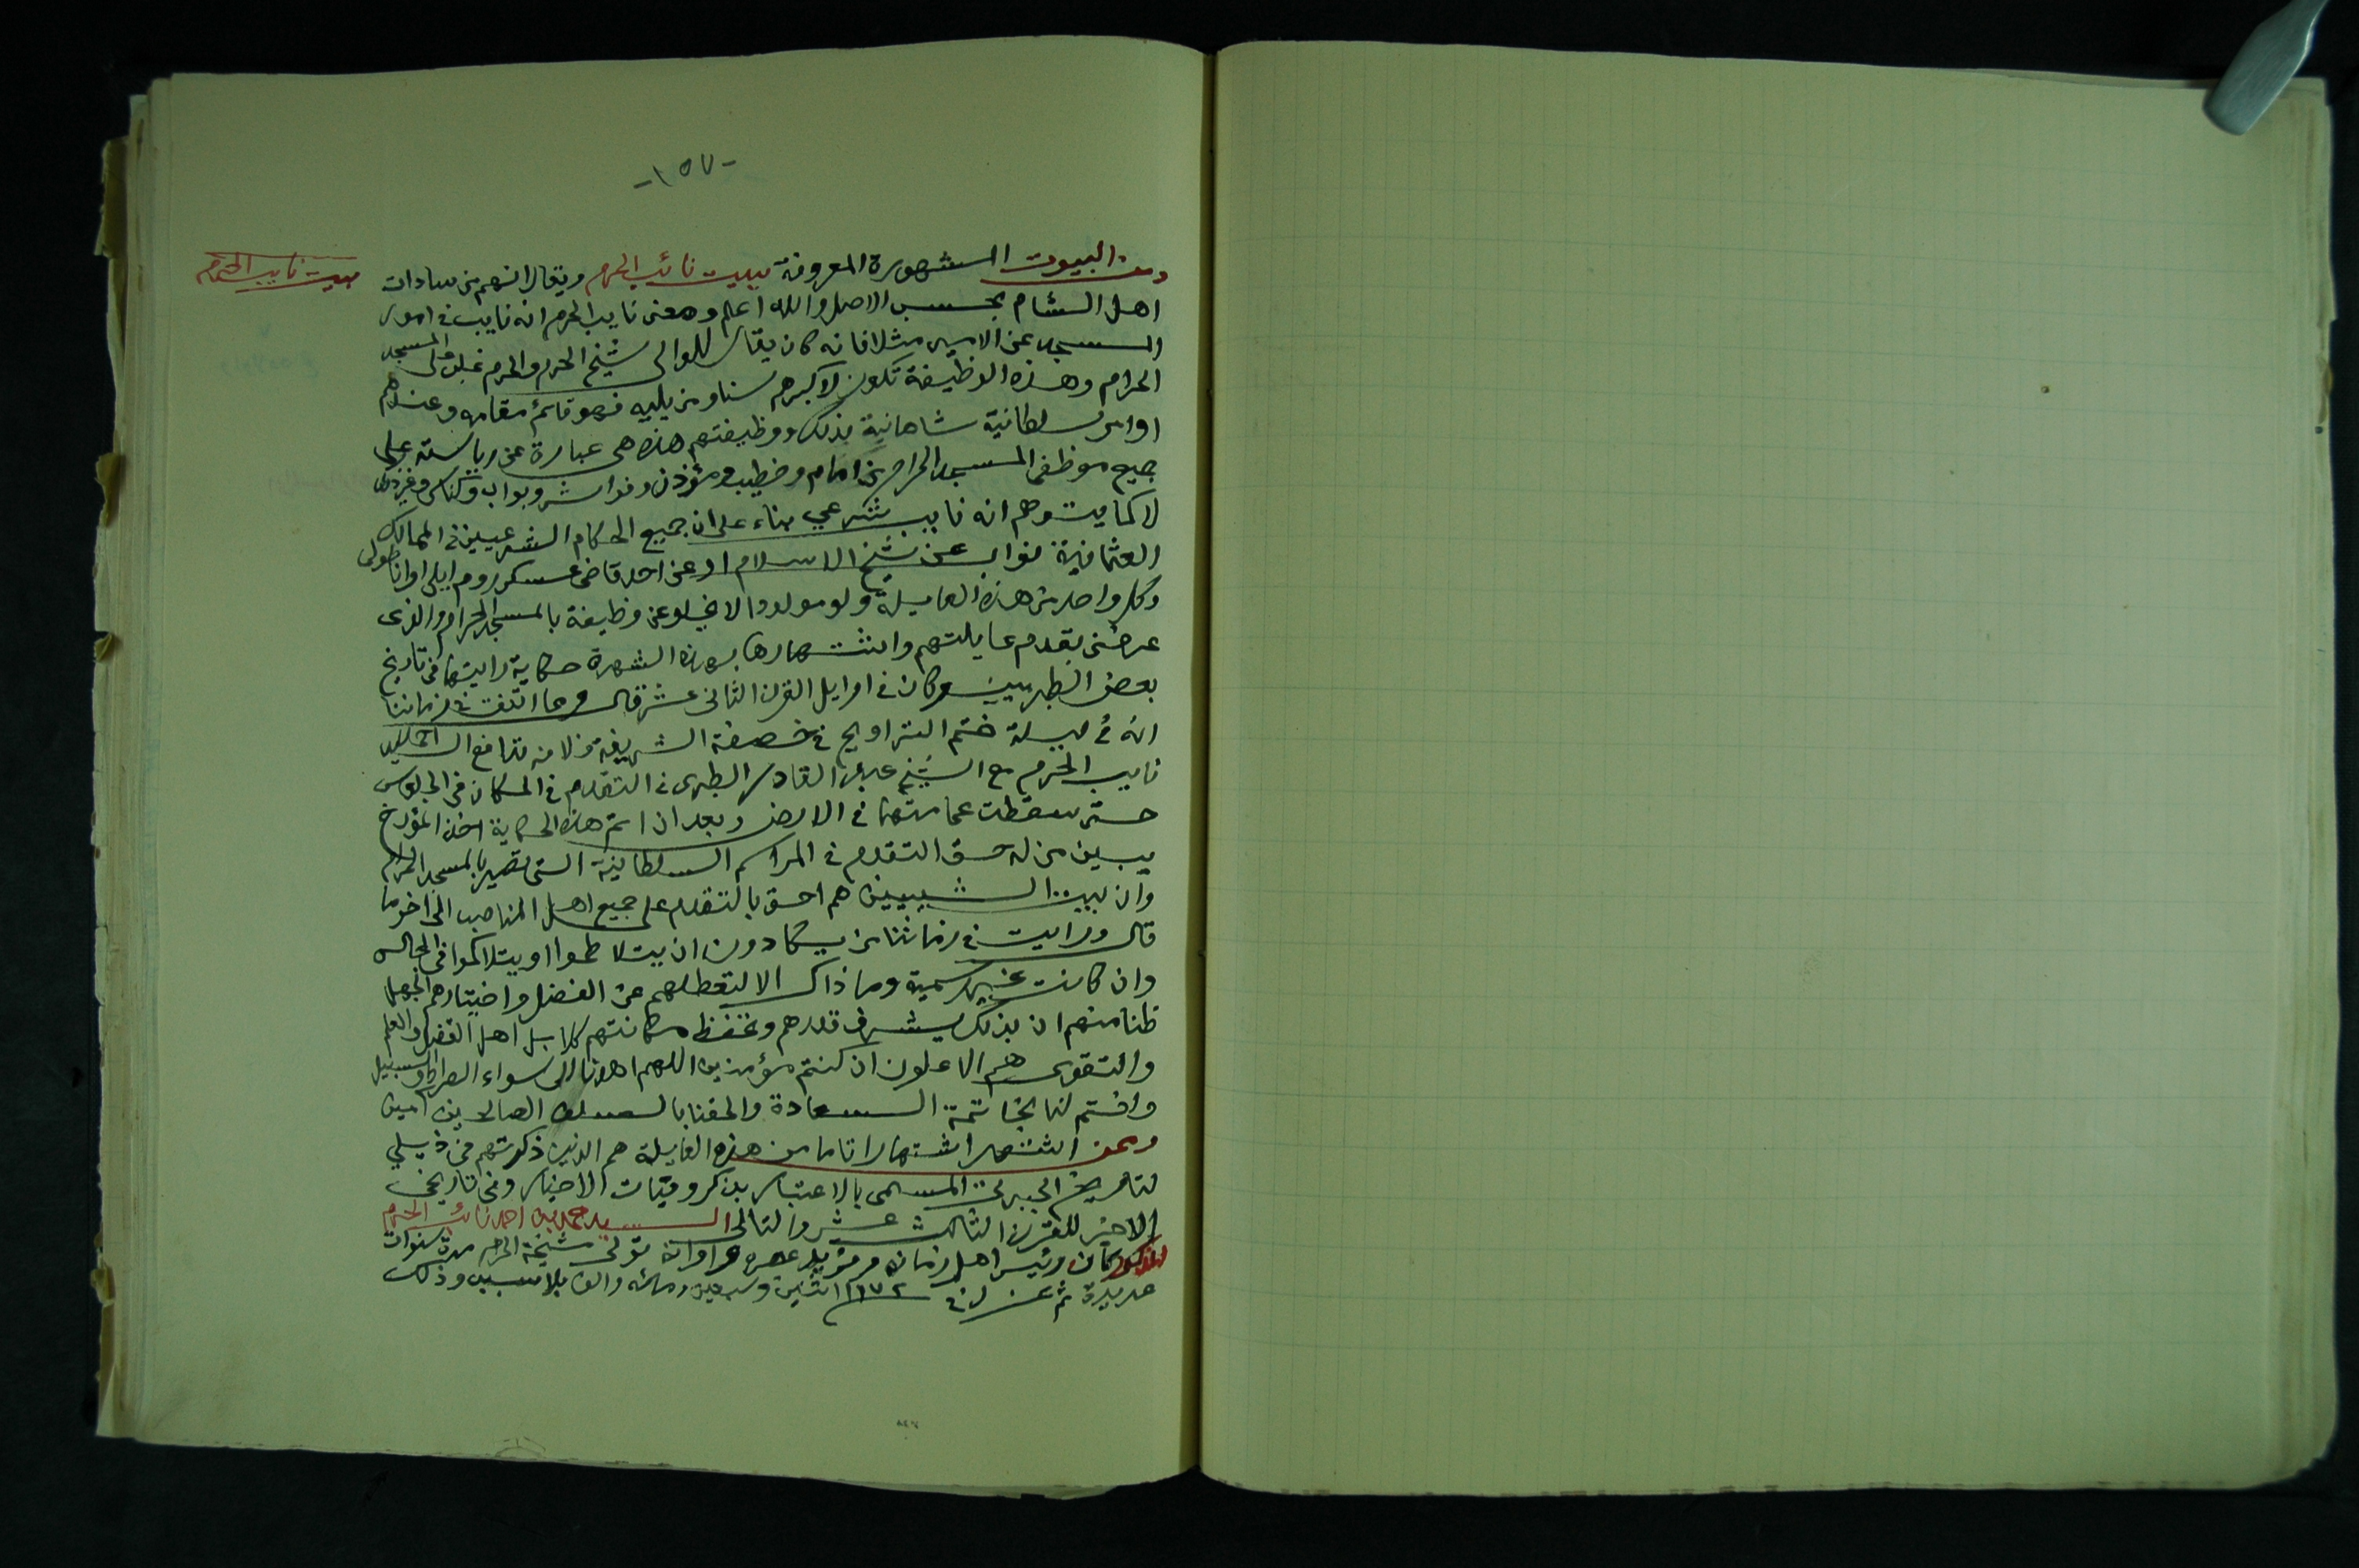 -١٥٧-
بيت نايب الحرم
ومن البيوت المشهورة المعروفة ببيت نائب الحرم ويقال انهم من سادات
اهل الشام بحسب الاصل والله اعلم ومعنى نايب الحرم انه نايب في امور
المسجد عن الامير مثلا فانه كان يقال للوالى شيخ الحرم والحرم غلب على المسجد
الحرام وهذه الوظيفة تكون لاكبرهم سنا ومن يليه فهو قائم مقامه وعندهم
اوامر سلطانية شاهانية بذلك ووظيفتهم هذه هى عبارة عن رياسته على
جميع موظفى المسجد الحرام من امام وخطيب ومؤذن وفراش وبواب وكناس وغير ذلك
لا كما يتوهم انه نايب شرعي بناء على ان جميع الحكام الشرعيين في الممالك
العثمانية نواب عن شيخ الاسلام او عن احد قاضى عسكر روم ايلى او اناطولى
وكل واحد من هذه العايلة ولو مولودا لا يخلو عن وظيفة بالمسجد الحرام والذى
عرفنى بقدم عايلتهم واشتهارها بهذه الشهرة حكاية رايتها فى تاريخ
بعض الطبريين وكان في اوايل القرن الثانى عشر قال ومما اتفق في زماننا
انه في ليلة ختم التراويح في الشريفة تدافع السيد
نايب الحرم مع الشيخ عبد القادر الطبرى في التقدم في المكان فى الجلوس
حتى سقطت عمامتهما في الارض وبعد ان اتم هذه الحكاية اخذ المؤرخ
يبين من له حق التقدم في المراسم السلطانية التى تصير بالمسجد الحرام
وان بيت الشيبيين هم احق بالتقدم على جميع اهل المناصب الى اخر ما
قال ورايت في زماننا من يكادون ان يتلاطموا او يتلاكموا فى المجالس
وان كانت غير رسمية وما ذاك الا لتعطلهم عن الفضل واختيارهم الجهل
ظنا منهم ان بذلك يشرف قدرهم وتحفظ مكانتهم كلا بل اهل الفضل والعلم
والتقوى هم الاعلون ان كنتم مؤمنين اللهم اهدنا الى سواء الصراط والسبيل
واختم لنا بخاتمة السعادة والحقنا بالسلف الصالحين امين
وممن اشتهر اشتهارا تاما من هذه العايلة هم الذين ذكرتهم فى ذيلي
لتاريخ الجبرتى المسمى بالاعتبار بذكر وفيات الاخيار وفى تاريخى
الاخر للقرن الثالث عشر والتالى السيد محمد بن احمد نائب الحرم
المذكور كان رئيس اهل زمانه تولى مشيخة الحرم مدة سنوات
عديدة ثم عزل في ١١٧٢ اثنين وسبعين ومائه والف بلا سبب وذلك